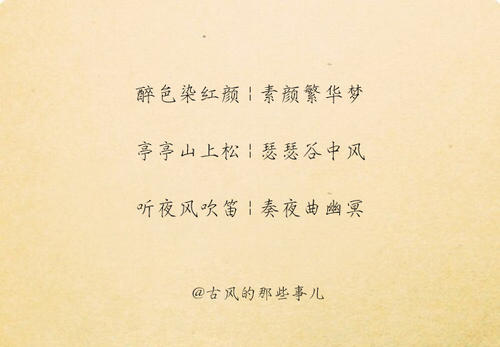 醉色染红颜¦素颜繁华梦
亭亭山上松¦瑟瑟谷中风
听夜风吹笛¦奏夜曲幽冥
@古风的那些事儿